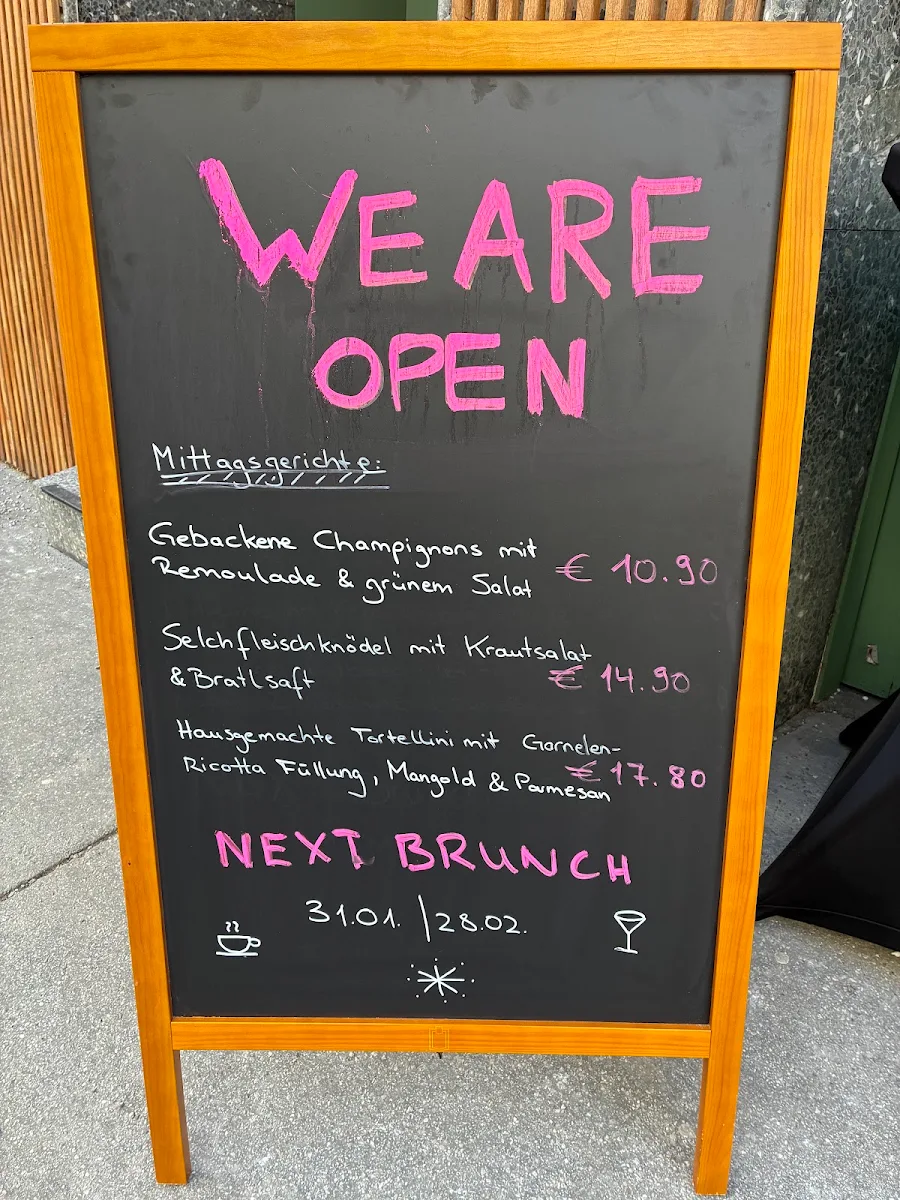 WE ARE
OPEN
Mittagsgerichte:
Gebackene Champignons mit
Remoulade & grünem Salat € 10.90
Selchfleischknödel mit Krautsalat
& Bratlsaft € 14.90
Hausgemachte Tortellini mit Garnelen-
Ricotta Füllung, Mangold & Parmesan € 17.80
NEXT BRUNCH
31.01. | 28.02.